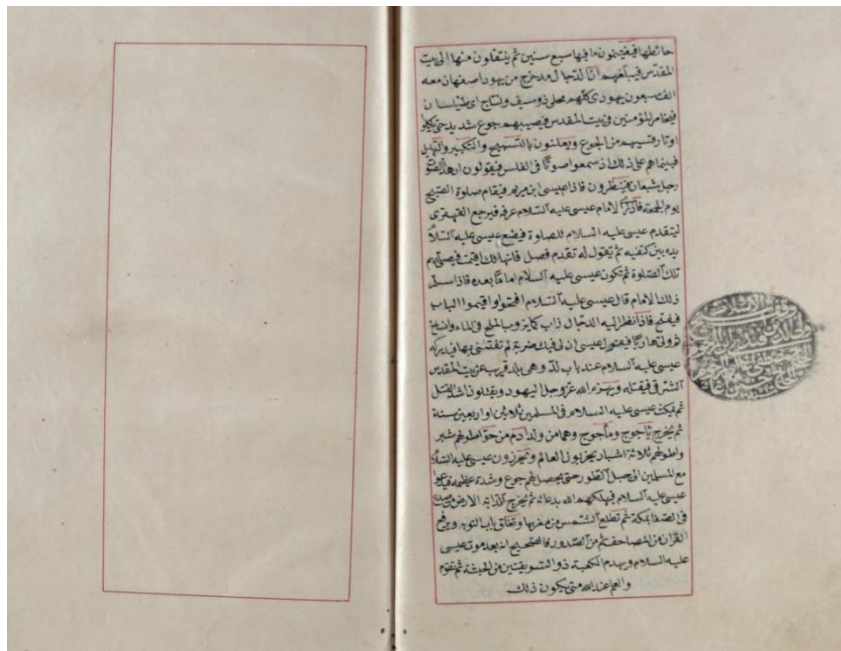 حائطها فيغتنمون ما فيها سبع سنين ثم ينتقلون منها الى بيت
المقدس فيبلغهم ان الدجال قد خرج من يهود اصفهان معه
سبعون يهودى كلهم محلى ذو سيف والتاج اى طيلسان
المؤمنين فى بيت المقدس فيصيبهم جوع شديد حتى
اوتار قسيهم من الجوع ويعلنون بالتسبيح والتكبير والتهليل
فبينما هم على ذلك اذ سمعوا صوتا فى الغلس فيقولون ان هذا لصوت
رجل شبعان فينظرون فاذا عيسى ابن مريم فيقام صلوة الصبح
يوم الجمعة الامام عيسى عليه السلام عرفه فيرجع القهقرى
ليتقدم عيسى عليه السلام للصلوة فيضع عيسى عليه السلام
يده بين كتفيه ثم يقول له تقدم فصل فانها لك اقيمت فيصلى بهم
تلك الصلوة ثم يكون عيسى عليه السلام اماما بعده فاذا سلم
ذلك الامام قال عيسى عليه السلام افتحوا اقيموا الباب
فيفتح فاذا نظر اليه الدجال ذاب كما يذوب الملح فى الماء
هاربا فيقول عيسى ان لى فيك ضربة لم تفتنى بها فيدركه
عيسى عليه السلام عند باب لد وهى بلد قريب من بيت المقدس
فيقتله ويهزم الله عز وجل اليهود ويقتلون اشد القتل
ثم يمكث عيسى عليه السلام فى المسلمين ثلاثين او اربعين سنة
ثم يخرج يأجوج ومأجوج وهما من ولد ادم من حوا طولهم شبر
واطولهم ثلاثة اشبار يخربون العالم عيسى عليه السلام
مع المسلمين الى جبل الطور حتى يحصل لهم جوع وشدة عظيمة
عيسى عليه السلام فيهلكهم الله بدعائه ثم يخرج دابة الارض من
فى الصفا بمكة ثم تطلع الشمس من مغربها وتغلق باب التوبة ويرفع
القرآن من المصاحف ثم من الصدور فالصحيح انه بعد موت عيسى
عليه السلام ويهدم الكعبة ذو السويقتين من الحبشة ثم تقوم
والعلم عند الله متى يكون ذلك